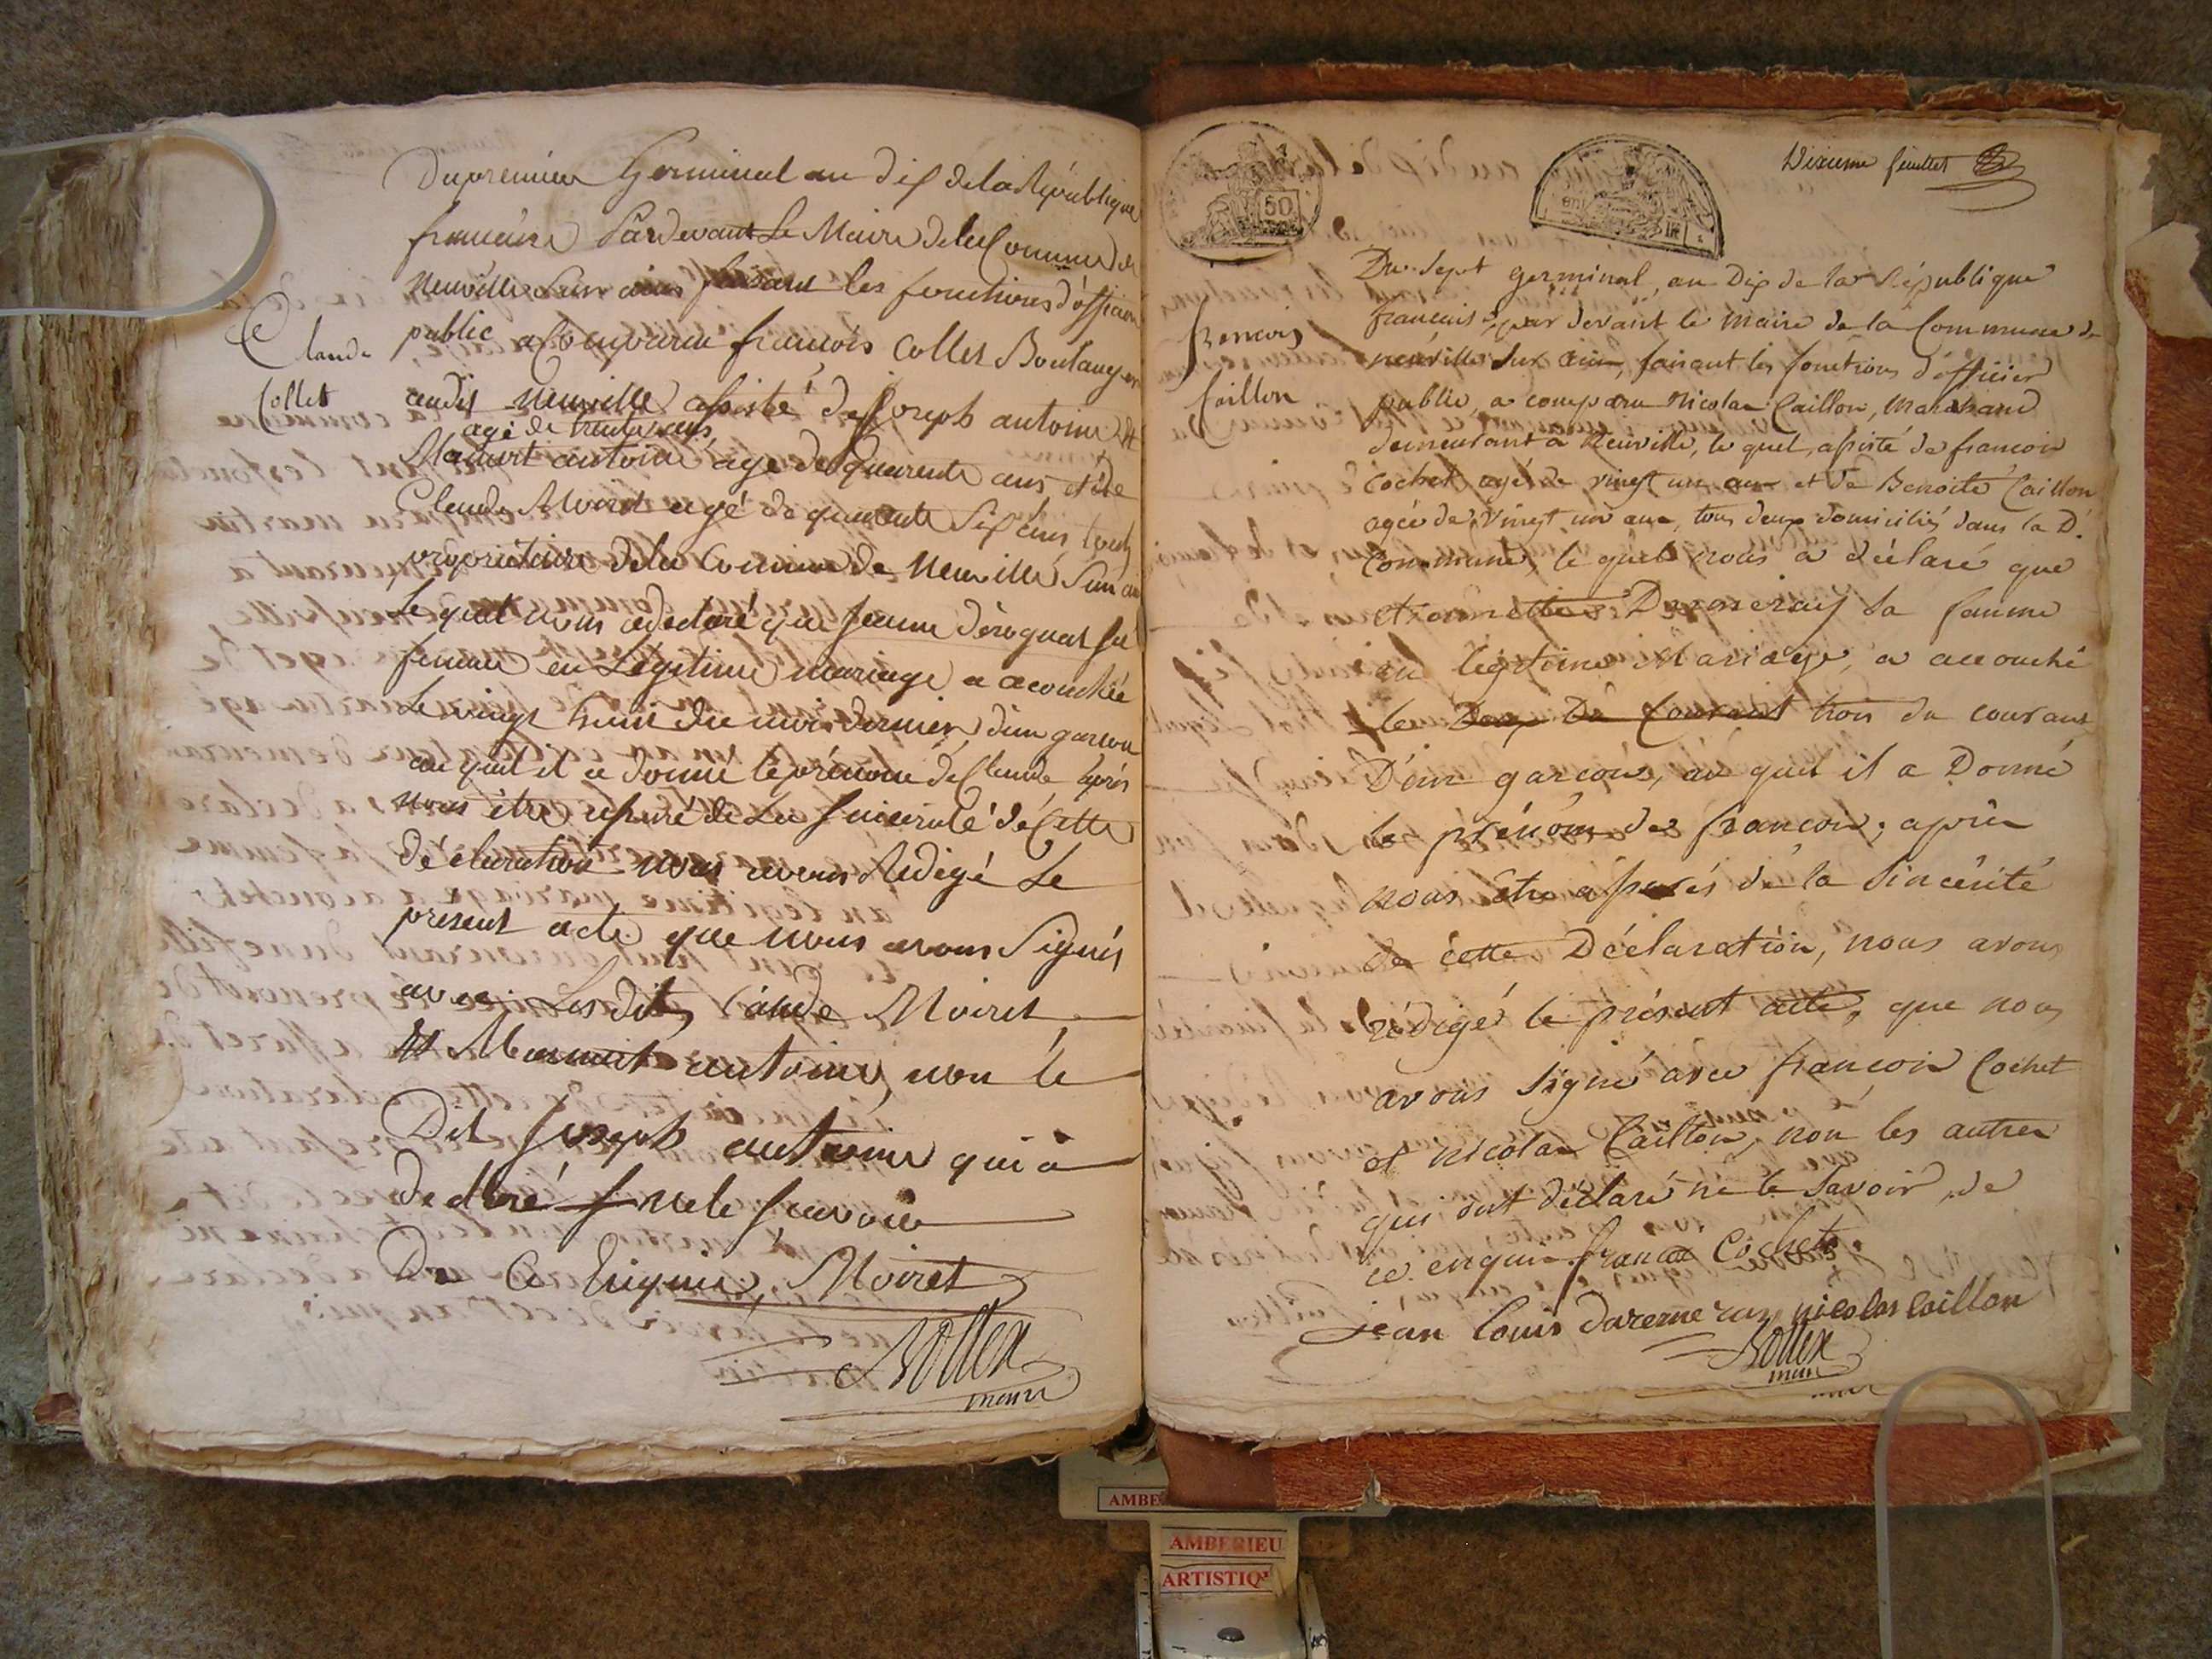 Du premier Germinal an dix de la République
francaise Pardevant Le Maire de la Commune de
Neuville Sur ain faisant les fonctions d'officier
public a Comparu francois Collet Boulanger
audit Neuville assisté de Joseph antoine et
agé de trente ans
Mamert antoine agé de quarente ans, et de
Claude Moiret agé de quarente Six ans, tous
propriétaires de la Commune de Neuville Sur ain
Lequel nous a declaré que Jeanne déroguat sa
femme en Legitime mariage a acouchée
Le vingt huit du mois dernier, d'un garcon
auquel il a donné le prénom de Claude après
nous être assuré de La Sincérité de Cette
déclaration nous avons Rédigé Le
présent acte que nous avons Signés
avec Lesdits Claude Moiret
et Mamert antoine, non le
Dit Joseph antoine qui a
declaré ne le scavoir
De Ce Enquis, Moiret
Bottex
maire
Claude
Collet
Dixieme feuillet
50
Du Sept germinal, an Dix de la République
francaise, par devant le maire de la Commune de
neuville sur ain, faisant les fonctions d'officier
public, a comparu Nicolas Caillon, Marchand
demeurant a Neuville, le quel, assisté de francois
Cochet agé de vingt un ans et de Benoite Caillon
agée de vingt un ans, tous deux domiciliés dans la D.
Commune, le quel nous a déclaré que
sa famme
en légitime Mariage, a accouché
le Deux Du Courant trois du courant
D'un garcon, au quel il a Donné
le prénom de francois; après
nous être assurés de la Sincérité
de cette Déclaration, nous avons
rédigé le présent acte, que nous
avons signé avec francois Cochet
et nicolas Caillon, non les autres
qui ont déclaré ne le savoir, de
ce enquis francoi Cochet
jean Louis daremeray nicolas Caillon
Bottex
maire
francois
Caillon
AMBERIEU
ARTISTIQ